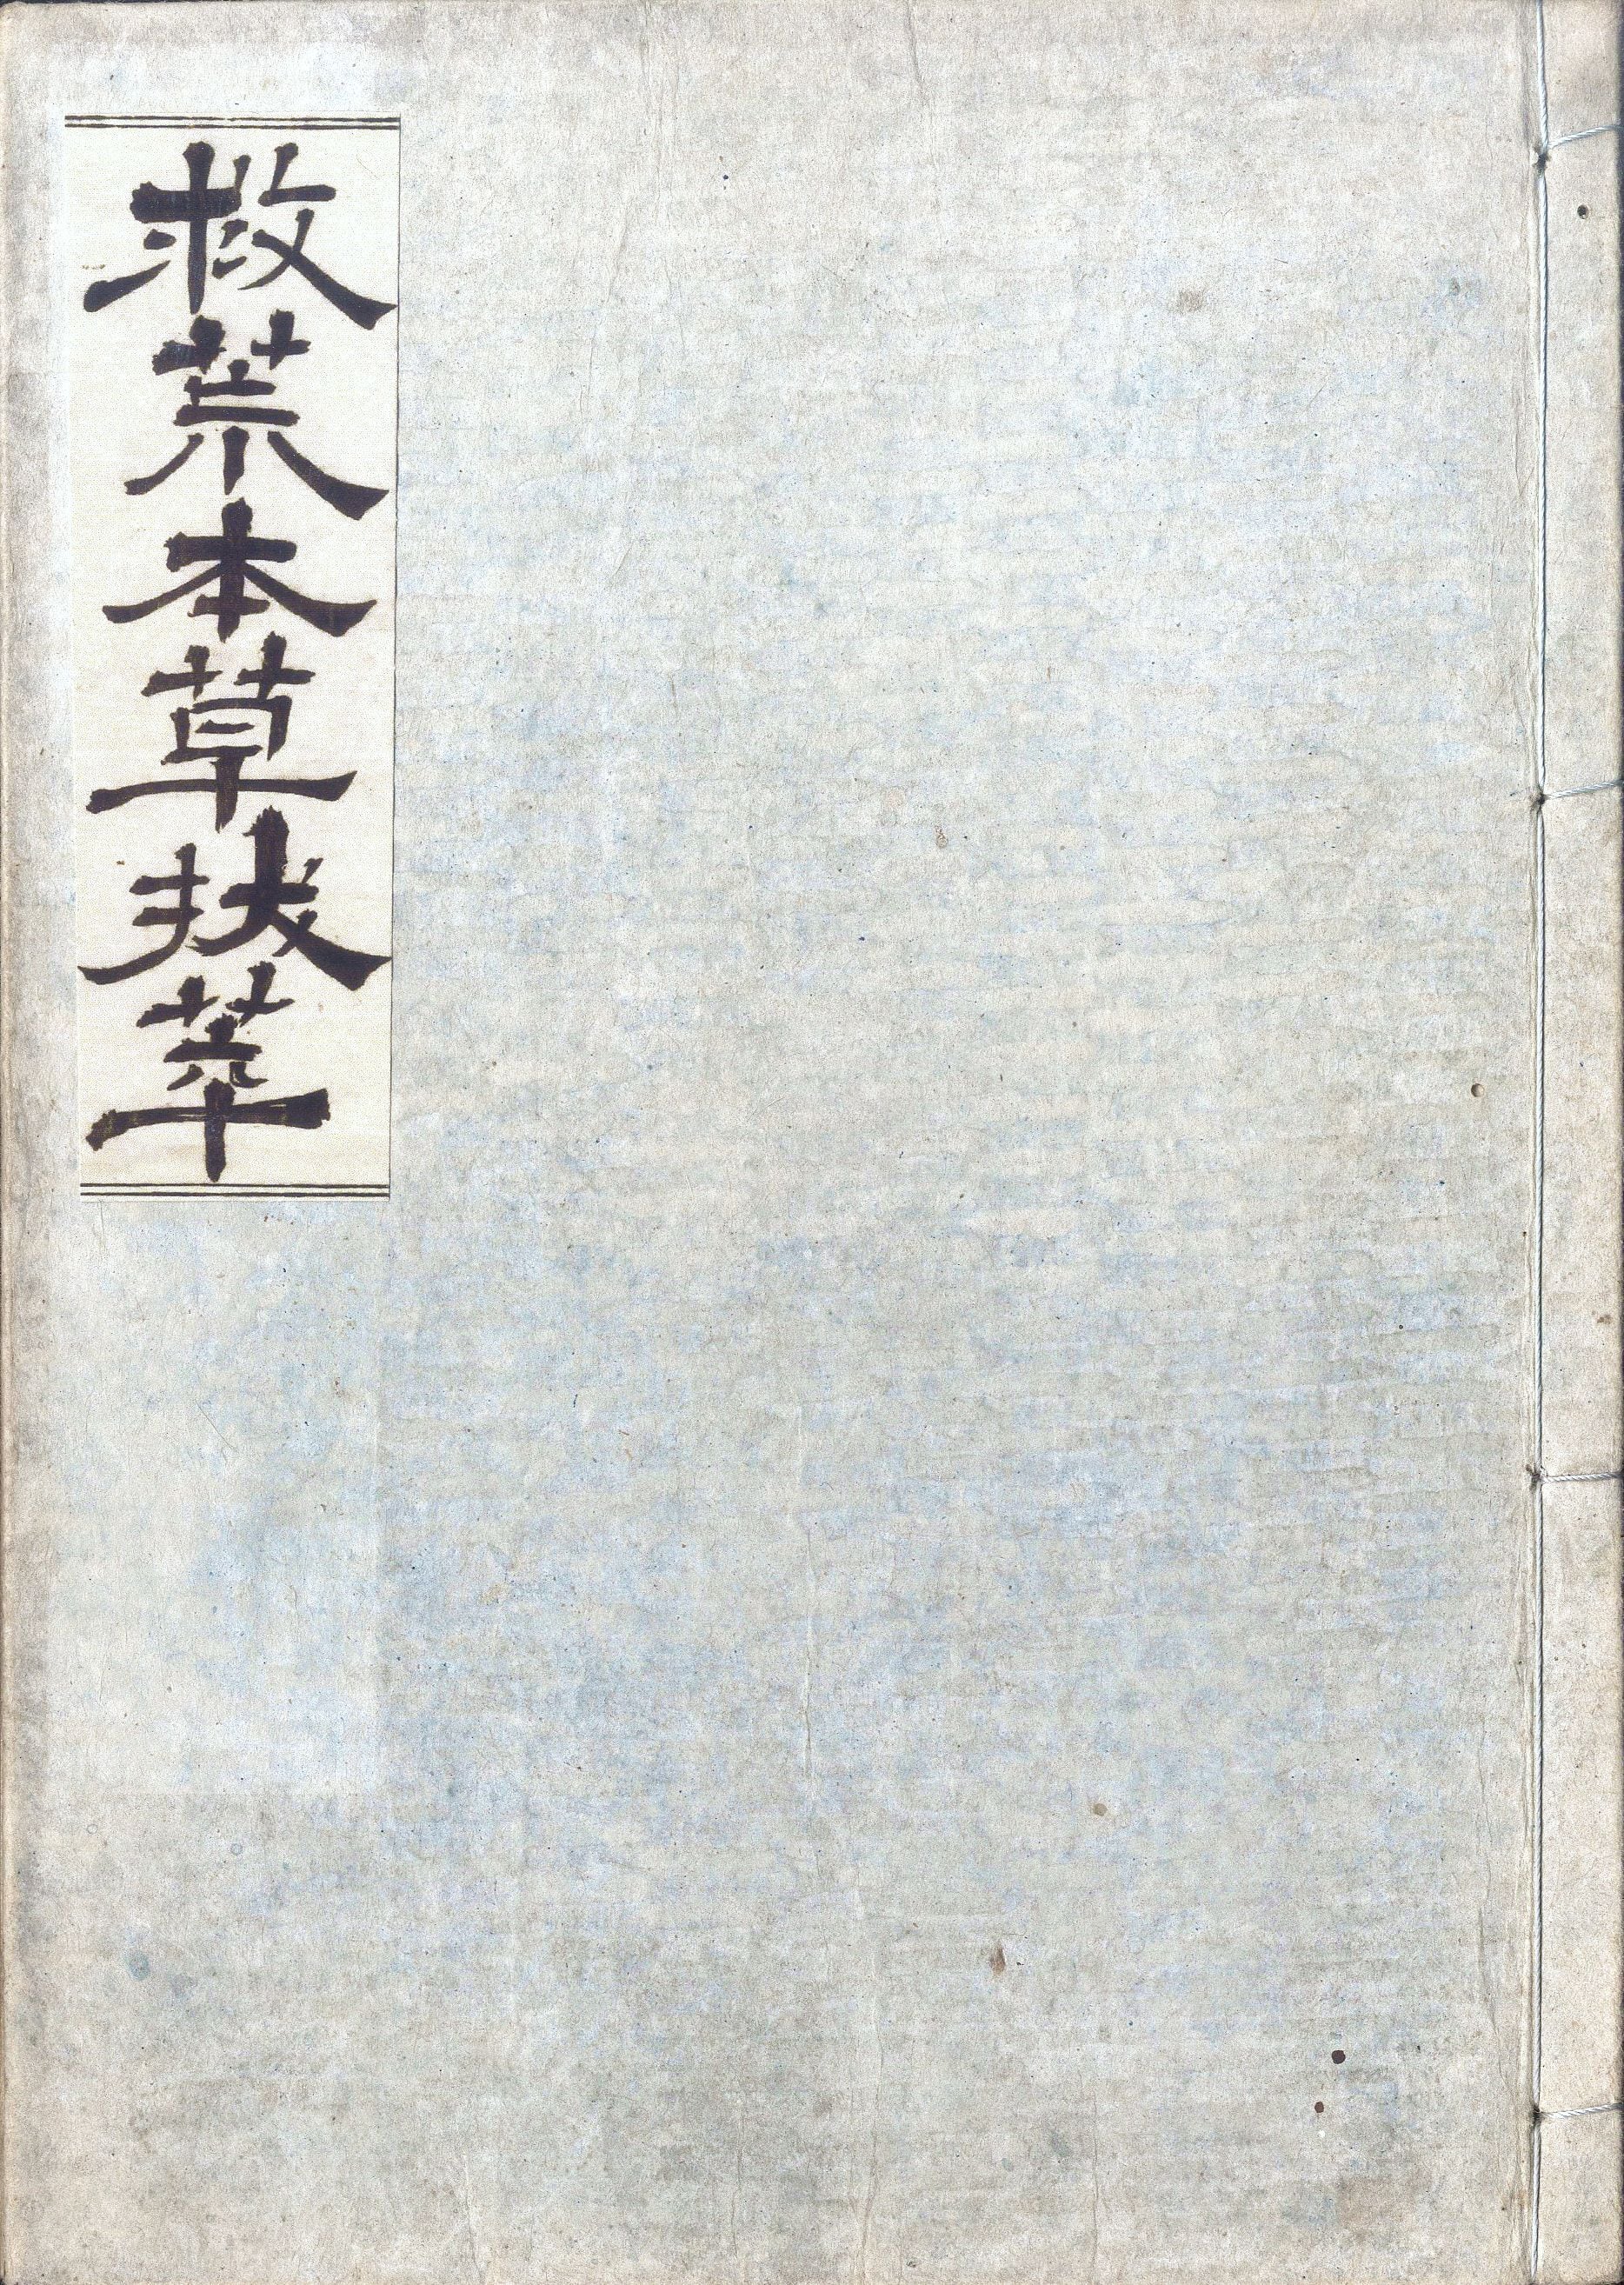 救荒本草拔萃